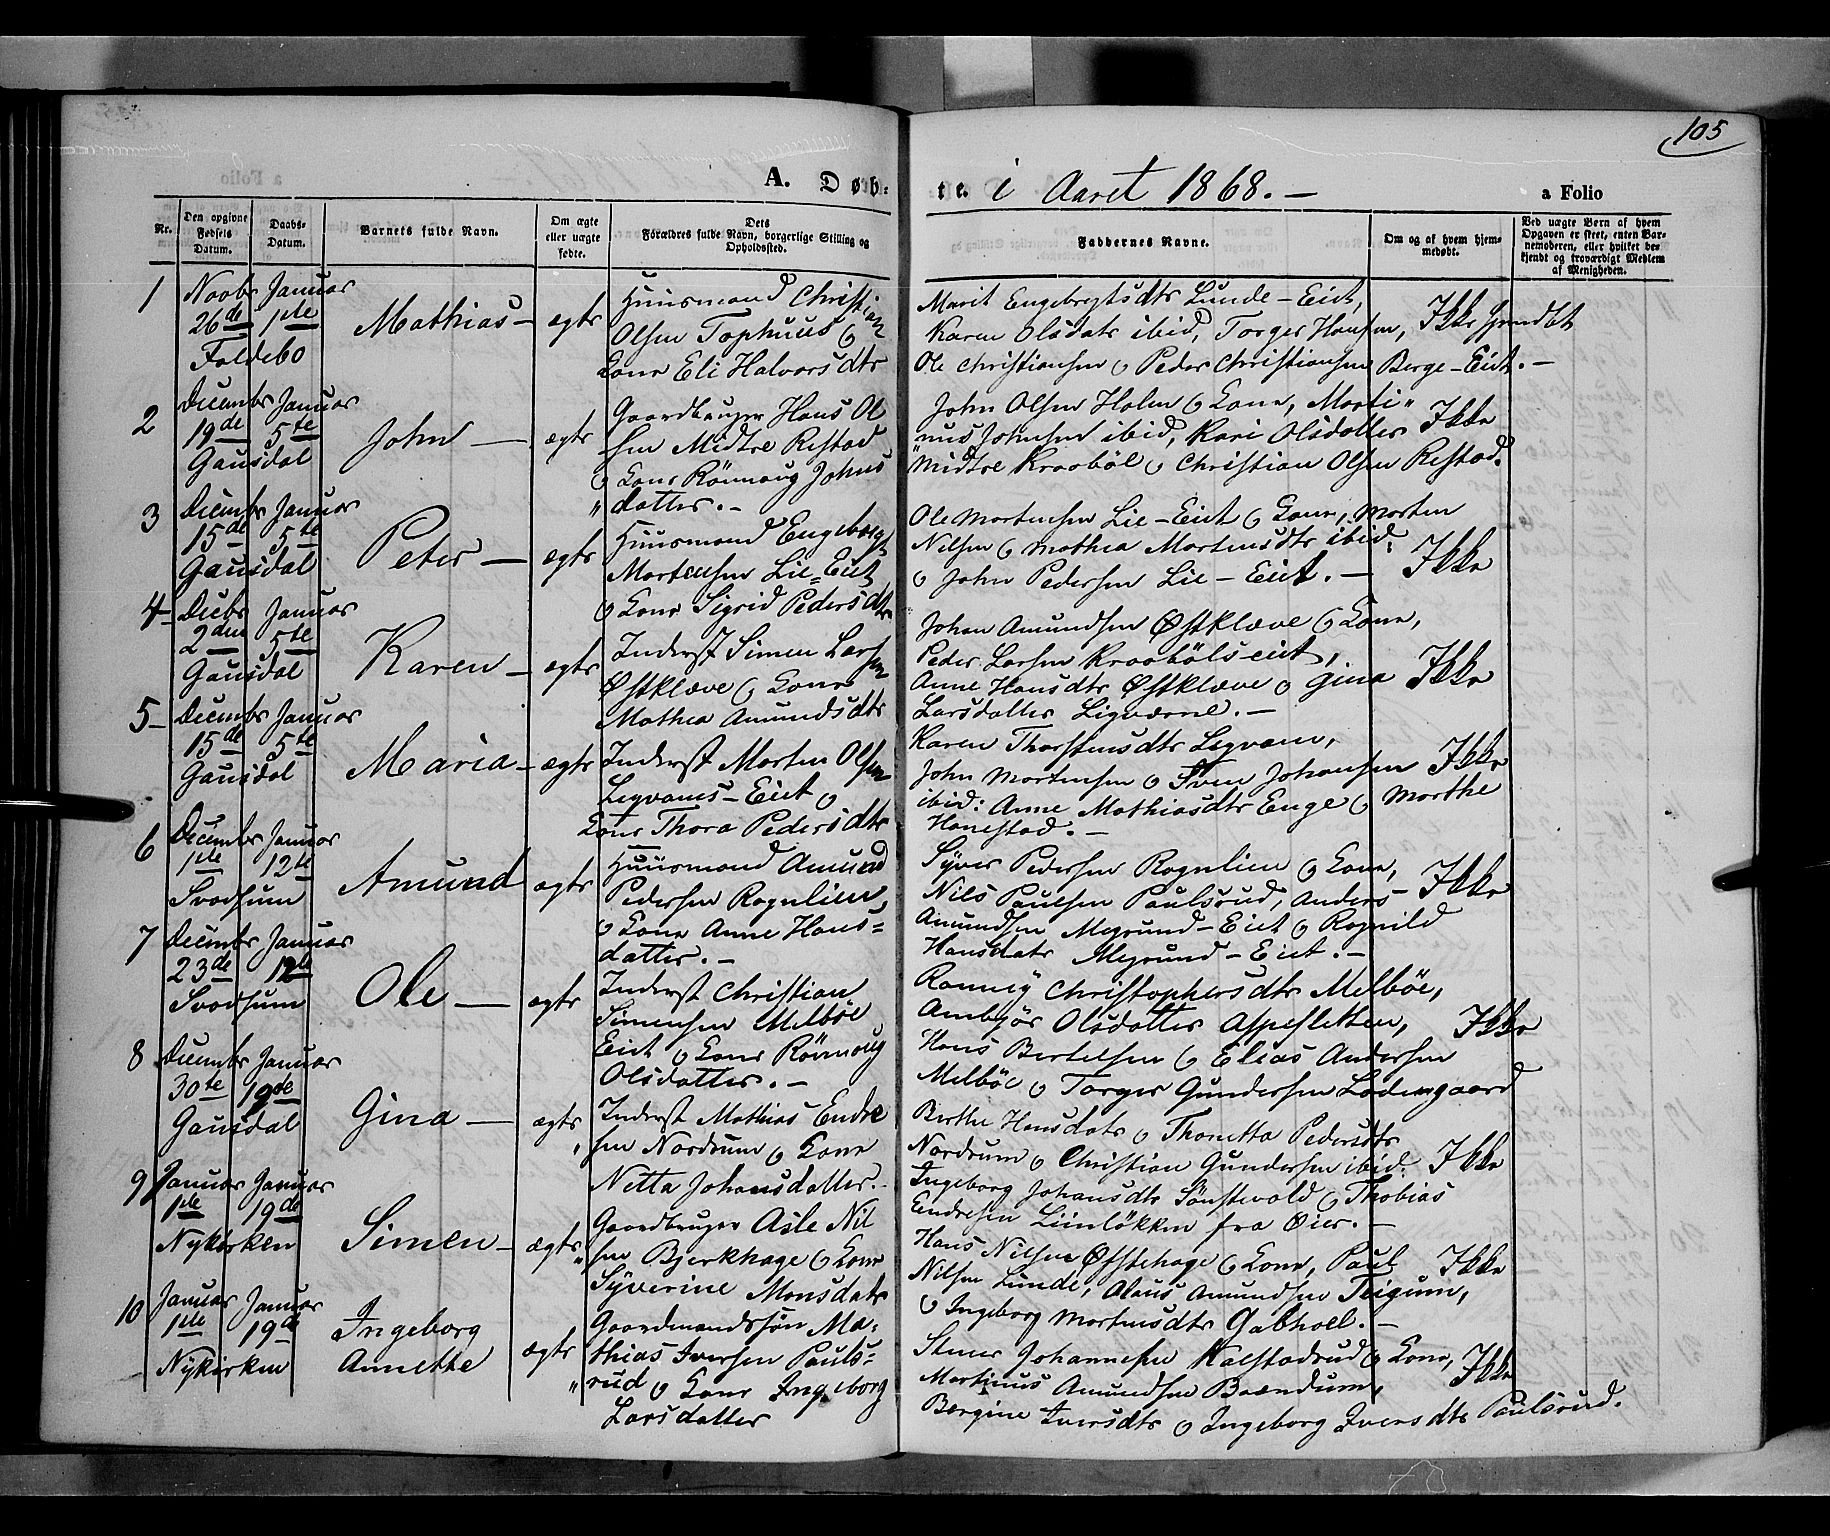 105
A. Døb-te. i Aaret 1868. —
a Folio
Nr.
Den opgivne Fødsels Datum.
Daabs-Datum.
Barnets fulde Navn.
Om ægte eller uægte fødte.
Dets Forældres fulde Navn, borgerlige Stilling og Opholdssted.
Faddernes Navne.
Om og af hvem hjemmedøbt.
Ved uægte Børn af hvem Opgaven er skeet, enten Barnemoderen, eller hvilket bekjendt og troværdigt Medlem af Menigheden.
1
Novbr 26de
Januar 1ste
Foldebo
Mathias —
ægte
Huusmand Christian
Olsen Tophuus &
Kone Eli Halvorsdtr
Marit Engebregtsdtr Lunde-Eiet,
Karen Olsdatr ibid, Torger Hansen,
Ole Christiansen & Peder Christiansen Berge-Eiet. —
Ikke
2
Decembr 19de
Januar 5te
Gausdal
John —
ægte
Gaardbruger Hans Ol
sen Midtre Restad
& Kone Rönnaug Johns
datter. —
John Olsen Holm & Kone, Marti"
nus Johnsen ibid, Kari Olsdatter
Midtre Kraaböl & Christian Olsen Restad.
Ikke
3
Decembr 15de
Januar 5te
Gausdal
Peter —
ægte
Huusmand Engebregt
Mortensen Lie=Eiet
& Kone Sigrid Pedersdtr
Ole Mortensen Lie-Eiet & Kone, Morten
Nilsen & Mathea Mortensdtr ibid,
& John Pedersen Lie-Eiet. —
Ikke
4
Decbr 2den
Januar 5te
Gausdal
Karen —
ægte
Inderst Simen Larsen
Østklæve & Kone
Mathea Amundsdtr
Johan Amundsen Østklæve & Kone,
Peder Larsen Kraabölseiet,
Anne Hansdtr Østklæve & Gina
Larsdatter Ligværne. —
Ikke
5
Decembr 15de
Januar 5te
Gausdal
Maria —
ægte
Inderst Morten Olsen
Legvanes-Eiet &
Kone Thora Pedersdtr
Karen Thorstensdtr Legvam,
John Mortensen & Sven Johansen
ibid: Anne Mathiasdtr Enge & Marthe
Hanestad. —
Ikke
6
Decembr 1ste
Januar 12te
Svadsum
Amund
ægte
Huusmand Amund
Pedersen Rognlien,
& Kone Anne Hans=
datter. —
Syver Pedersen Rognlien & Kone,
Nils Paulsen Paulsrud, Anders
Amundsen Megrund-Eiet & Ragnild
Hansdatr Megrund-Eiet. —
Ikke
7
Decembr 23de
Januar 12te
Svadsum
Ole —
ægte
Inderst Christian
Simensen Melböe
Eiet & Kone Rönnaug
Olsdatter. —
Ronnig Christophersdtr Melböe,
Ambjör Olsdatter Aspesletten,
Hans Bertelsen & Elias Andersen
Melböe & Torger Gundersen Lodengaard
Ikke
8
Decembr 30te
Januar 19de
Gausdal
Gina —
ægte
Inderst Mathias Endre
sen Nordrum & Kone
Netta Johansdatter. —
Berthe Hansdatr & Thonetta Pedersdtr
Nordrum & Christian Gundersen ibid.
Ingeborg Johansdtr Sönstevold & Thobias
Endresen Liinlökken fra Öier. —
Ikke
9
Januar 1ste
Januar 19de
Nykirken
Simen —
ægte
Gaardbruger Asle Nil
sen Bjerkhage & Kone
Syverine Monsdatr
Hans Nilsen Øfstehage & Kone, Paul
Nilsen Lunde, Olaus Amundsen Teigum,
& Ingeborg Mortensdtr Gabhoel. —
Ikke
10
Januar 1ste
Januar 19d
Nykirken
Ingeborg
Annette
ægte
Gaardmandssön Ma-
thias Iversen Pauls=
rud & Kone Ingeborg
Larsdatter
Stener Johannesen Kalstadrud & Kone,
Martinus Amundsen Baandum,
Bergine Iversdtr & Ingeborg Iversdtr Paulsrud.
Ikke